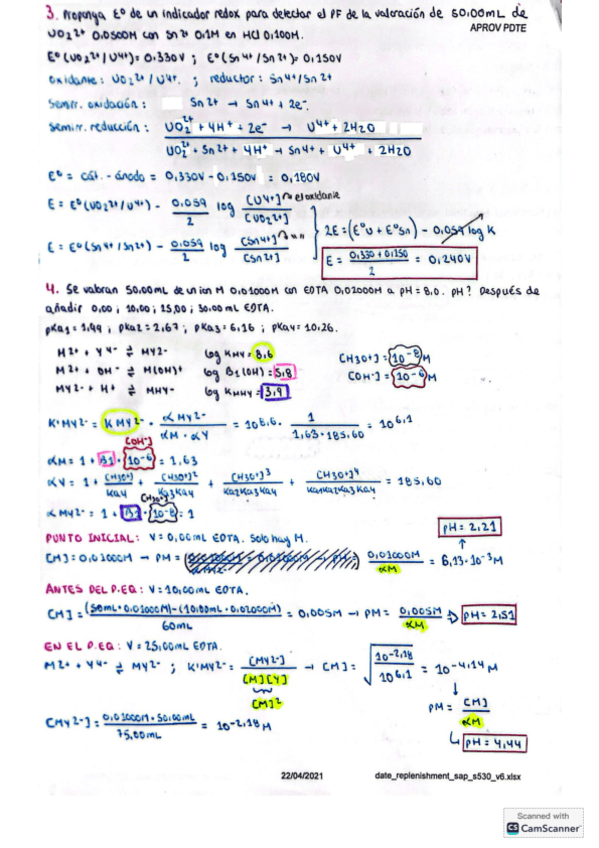 3. Proponga E° de un indicador redox para detectar el PF de la valoración de 50,00mL de
UO2 2+ 0,0500M con Sn2+ 0,1M en HCl 0,100M.
APROV PDTE
E°(UO2 2+/U4+)= 0,330V ; E°(Sn4+/Sn2+)= 0,150V
oxidante: UO2 2+/U4+. ; reductor: Sn4+/Sn2+
Semirr. oxidación: Sn2+ → Sn4+ + 2e-.
semirr. reducción: UO2 2+ + 4H+ + 2e- → U4+ + 2H2O
UO2 2+ + Sn2+ + 4H+ → Sn4+ + U4+ + 2H2O
E° = cát. - ánodo = 0,330V - 0,150V = 0,180V
E = E°(UO2 2+/U4+) - 0,059/2 log [U4+]/[UO2 2+] el oxidante
E = E°(Sn4+/Sn2+) - 0,059/2 log [Sn4+]/[Sn2+]
2E = (E°U + E°Sn) - 0,059 log K
E = 0,330 + 0,150/2 = 0,240V
4. Se valoran 50,00mL de un ion M 0,01000M con EDTA 0,02000M a pH = 8,0. pH? Después de
añadir 0,00 ; 10,00 ; 25,00 ; 30,00 mL EDTA.
pKa1 = 1,99 ; pKa2 = 2,67 ; pKa3 = 6,16 ; pKa4 = 10,26.
M2+ + Y4- ⇌ MY2- log KMY = 8,6
M2+ + OH- ⇌ M(OH)+ log B1(OH) = 5,8
MY2- + H+ ⇌ MHY- log KMHY = 3,9
[H3O+] = 10-8 M
[OH-] = 10-6 M
K'MY2- = KMY2- · αMY2-/αM · αY = 10 8,6 · 1/1,63 · 185,60 = 10 6,1
[OH-]
αM = 1 + B1 · 10-6 = 1,63
αY = 1 + [H3O+]/Ka4 + [H3O+]2/Ka3Ka4 + [H3O+]3/Ka2Ka3Ka4 + [H3O+]4/Ka1Ka2Ka3Ka4 = 185,60
[H3O+]
αMY2- = 1 + B1 · 10-8 = 1
PUNTO INICIAL: V = 0,00mL EDTA. Solo hay M.
pH = 2,21
[M] = 0,01000M → PM = 0,01000M/αM = 6,13·10-3M
ANTES DEL P.EQ: V = 10,00mL EDTA.
[M] = (50mL·0,01000M)-(10,00mL·0,02000M)/60mL = 0,005M → PM = 0,005M/αM ⇒ pH = 2,51
EN EL P.EQ: V = 25,00mL EDTA.
M2+ + Y4- ⇌ MY2- ; K'MY2- = [MY2-]/[M][Y] → [M] = √10-2,18/10 6,1 = 10-4,14M
[M]2
PM = [M]/αM
[MY2-] = 0,01000M · 50,00mL/75,00mL = 10-2,18M
pH = 4,44
22/04/2021
date_replenishment_sap_s530_v6.xlsx
Scanned with
CS CamScanner